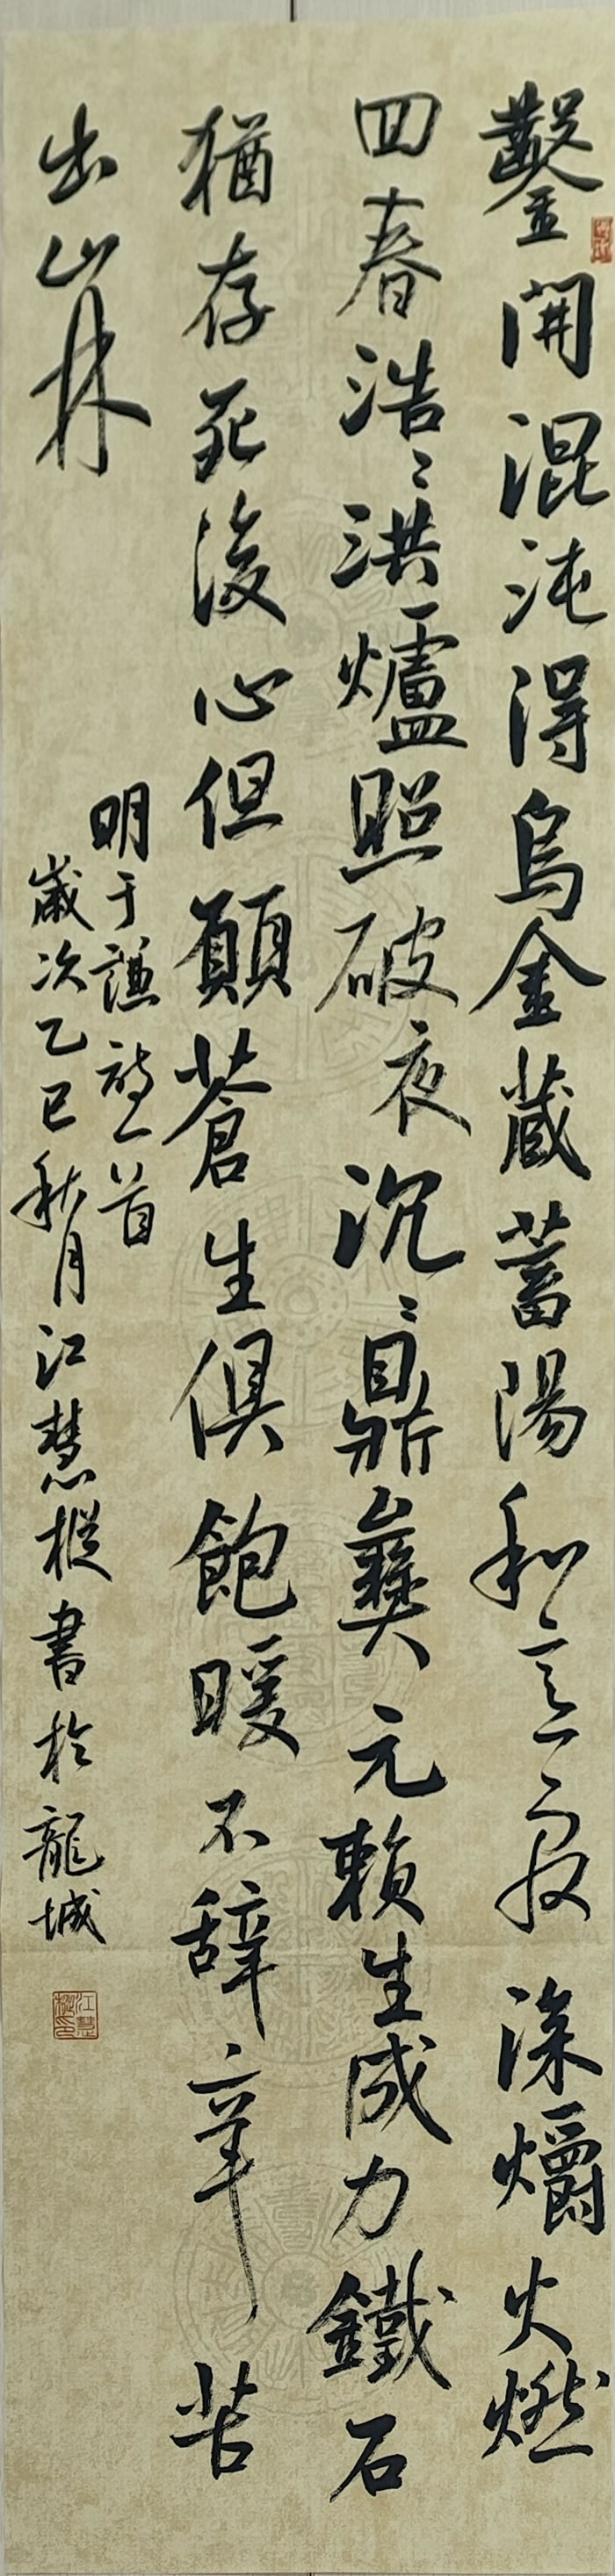 鑿開混沌得烏金蔵蓄陽和意最深爝火燃
回春浩〻洪爐照破夜沉〻鼎彝元賴生成力鐵石
猶存死後心但願蒼生俱飽暖不辭辛苦
出山林
明于謙詩一首
歲次乙巳秋月江慧樅書於龍城
江慧樅印